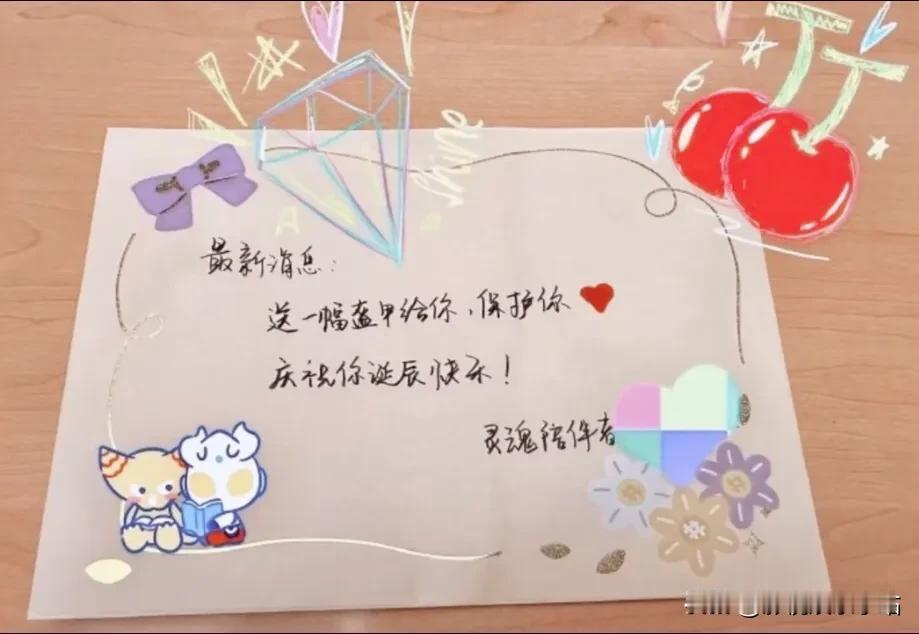 shine
最新消息：
送一幅盔甲给你，保护你
庆祝你诞辰快乐！
灵魂陪伴者